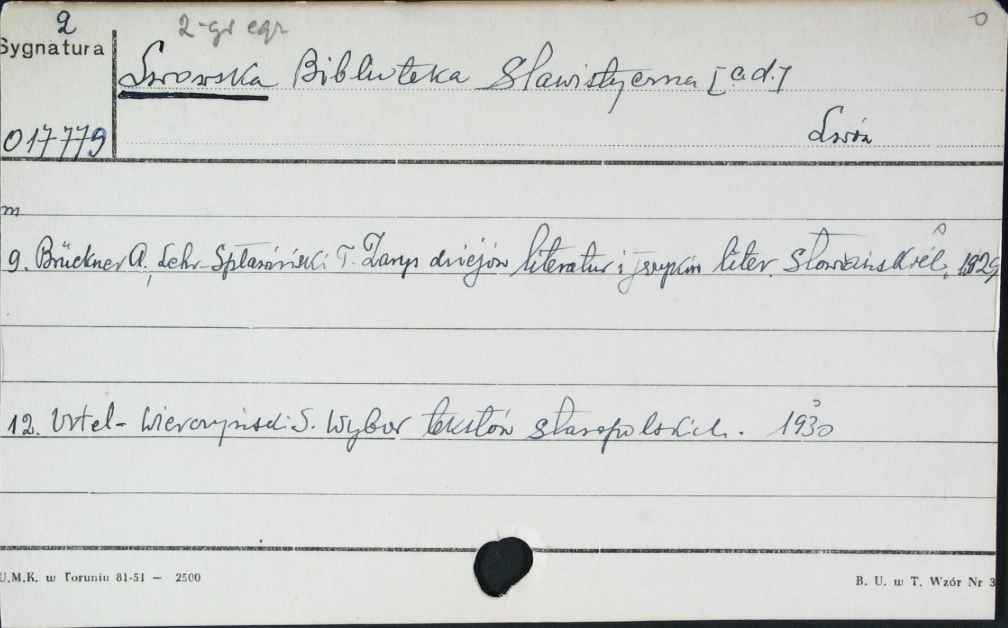 2
2-gi egz
0
Sygnatura
Lwowska Biblioteka Slawistyczna [c.d.]
017779
Lwów
m
9. Brückner A., Lehr-Spławiński T. Zarys dziejów literatur i języków liter. Słowiańskich, 1929
12. Vrtel-Wierczyński S. Wybór tekstów staropolskich. 1930
U.M.K. w Toruniu 81-51 — 2500
B. U. w T. Wzór Nr 3